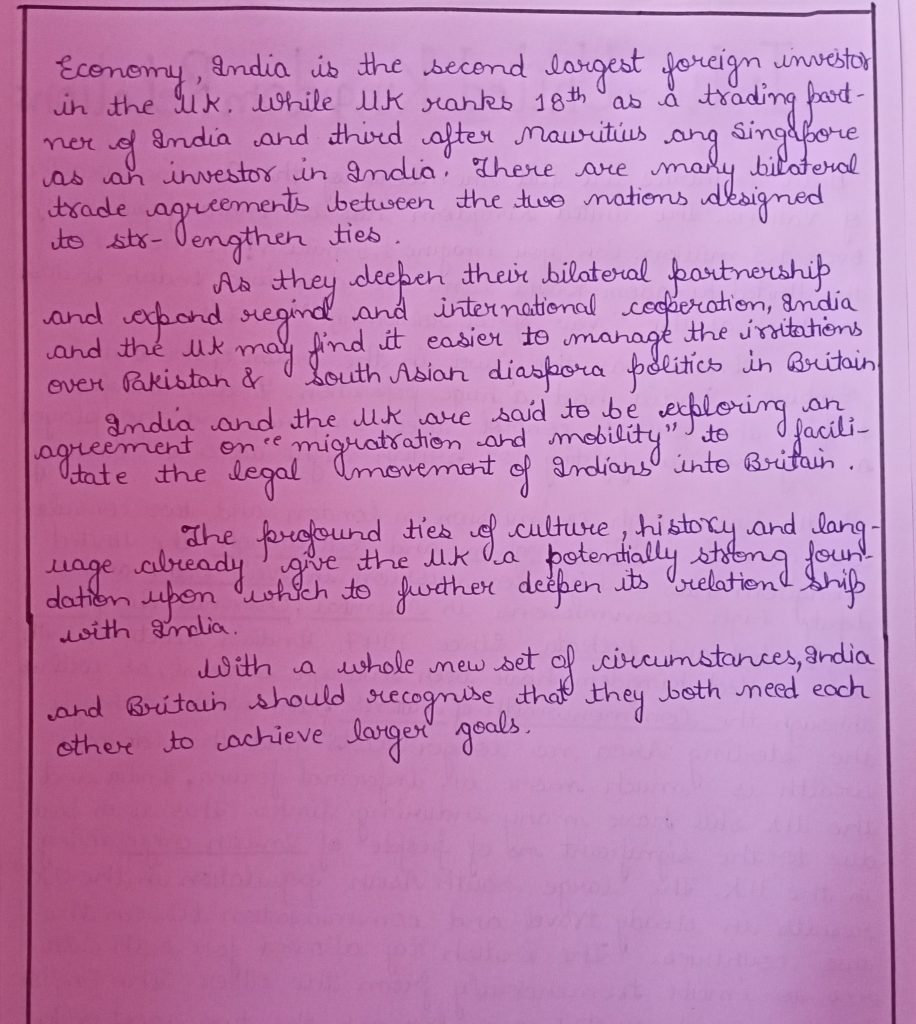 Economy, India is the second largest foreign investor
in the UK. While UK ranks 18th as a trading part-
ner of India and third after Mauritius ang Singapore
as an investor in India. There are many bilateral
trade agreements between the two nations designed
to str- engthen ties.
As they deepen their bilateral partnership
and expand reginal and international cooperation, India
and the UK may find it easier to manage the irritations
over Pakistan & South Asian diaspora politics in Britain
India and the UK are said to be exploring an
agreement on "migratration and mobility" to facili-
tate the legal movement of Indians into Britain.
The profound ties of culture, history and lang-
uage already give the UK a potentially strong foun-
dation upon which to further deepen its relation ship
with India.
With a whole new set of circumstances, India
and Britain should recognise that they both need each
other to achieve larger goals.